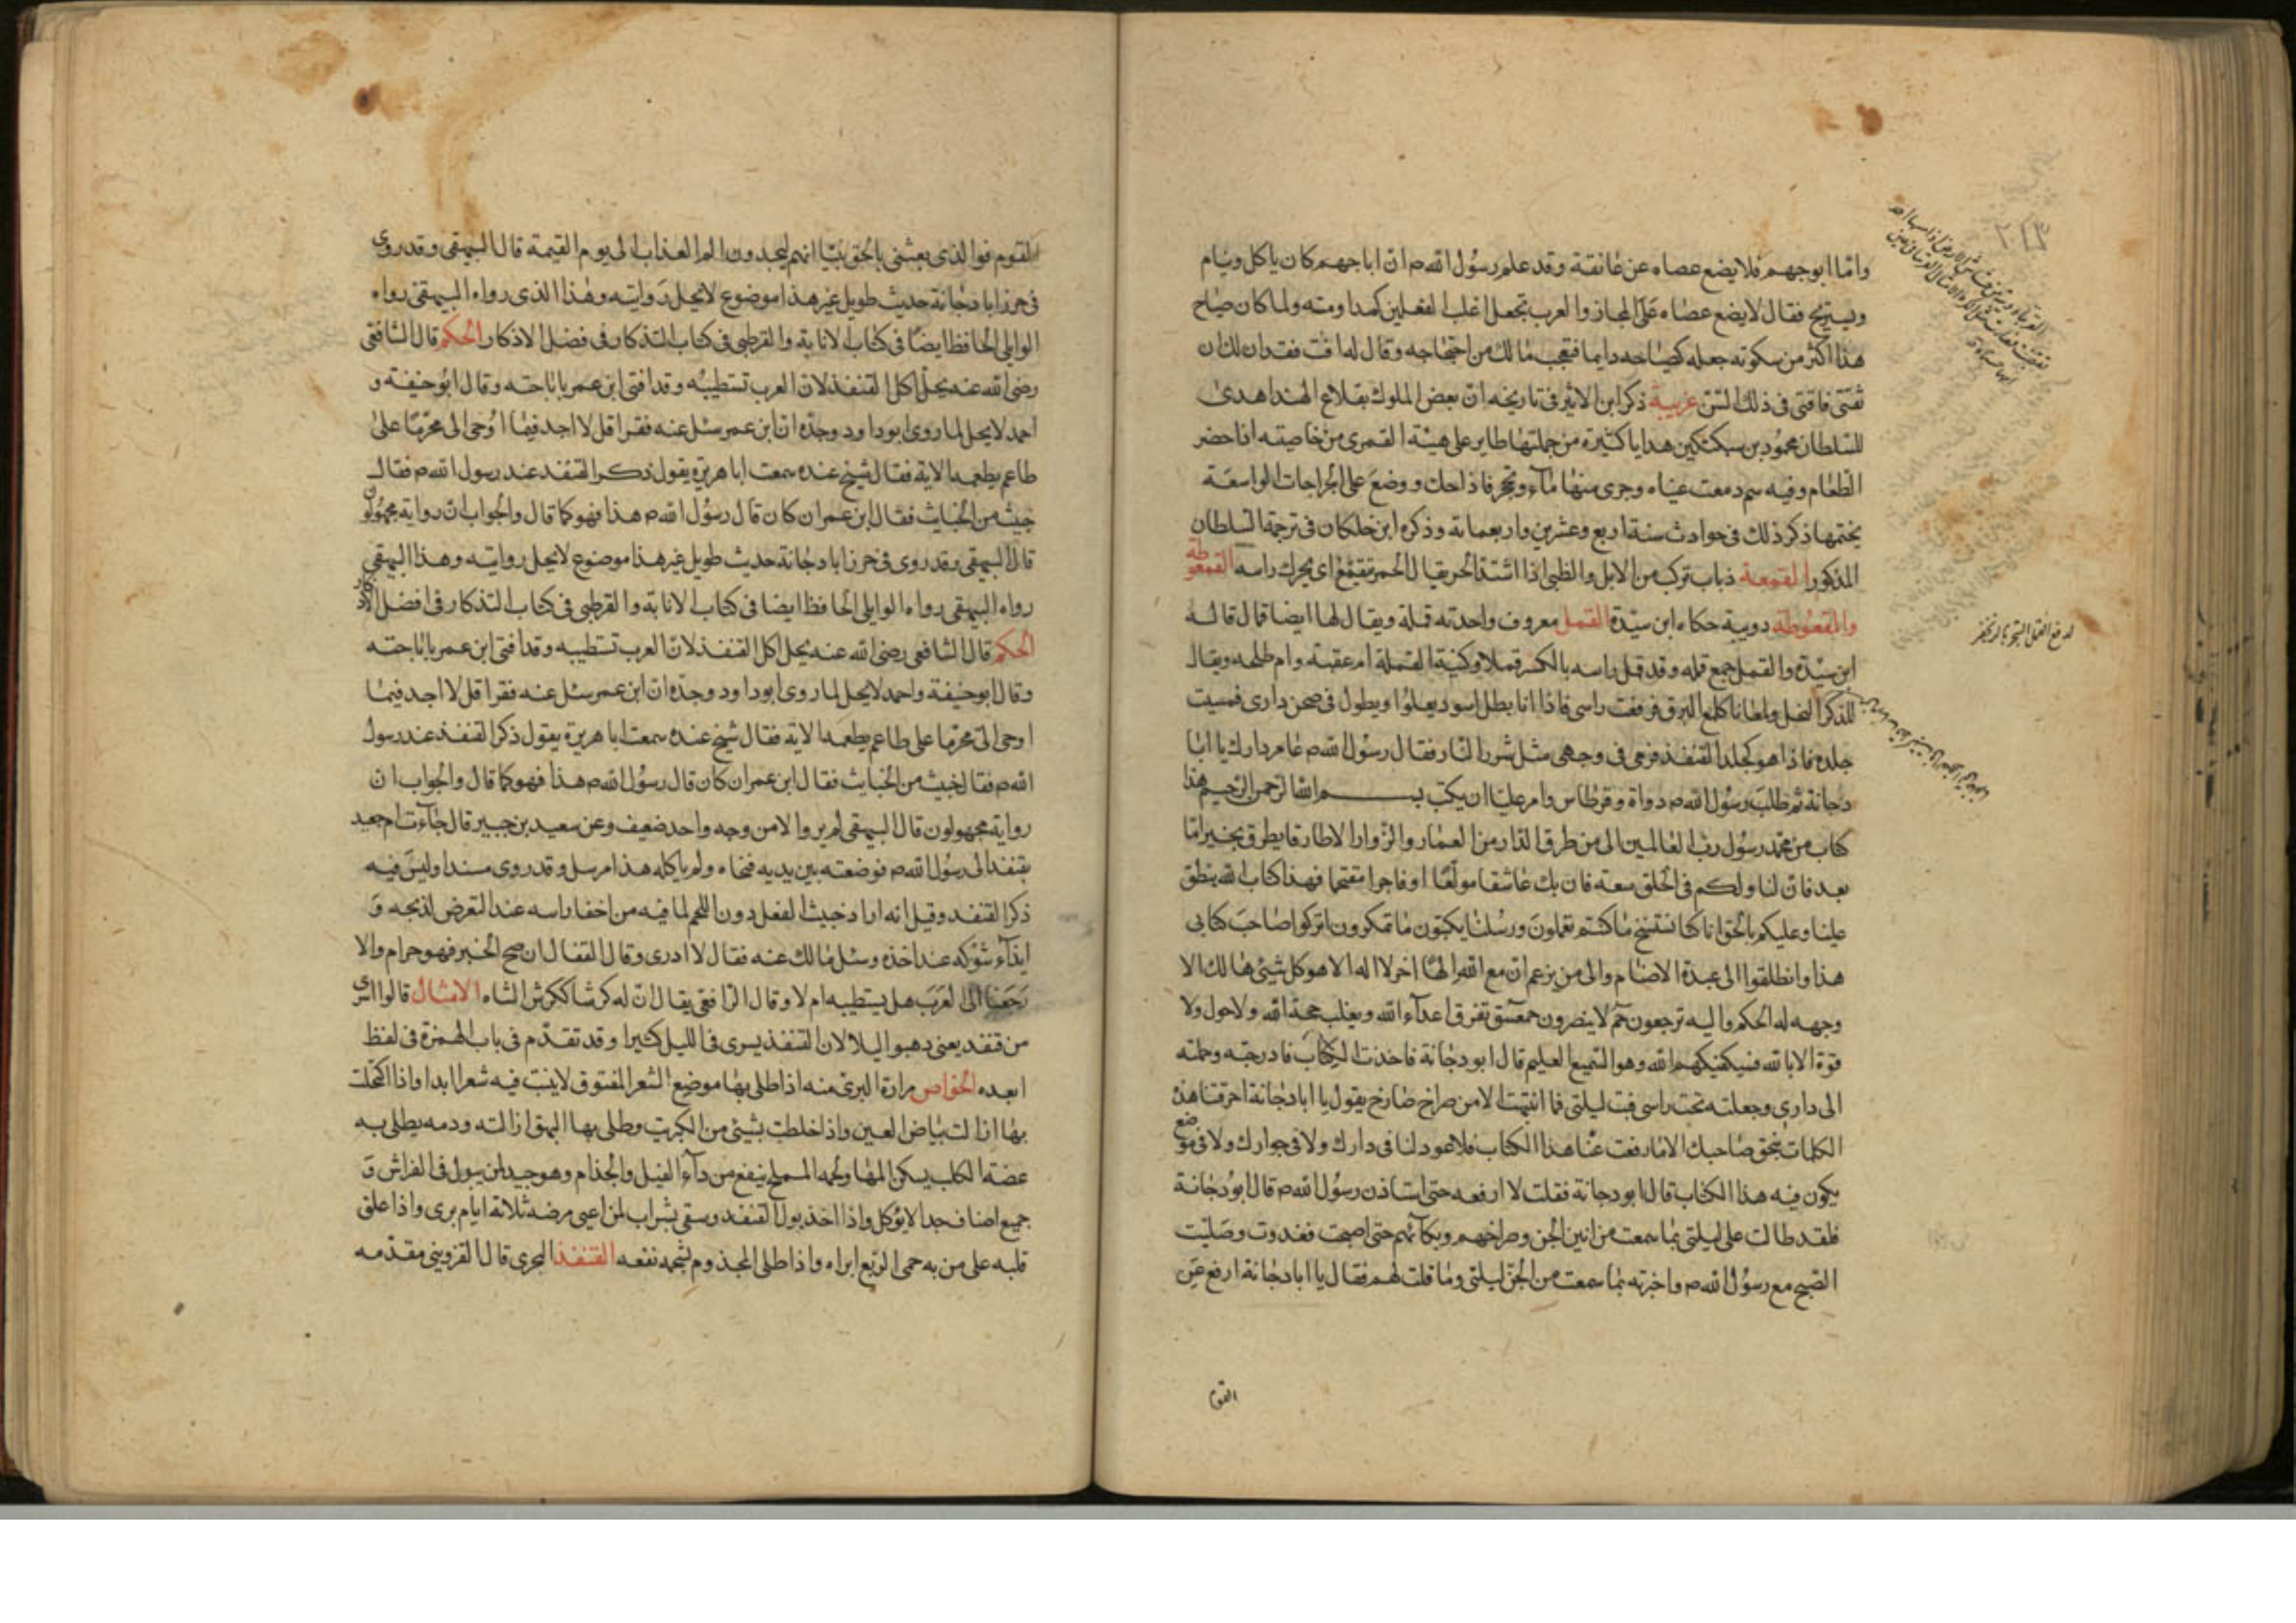 واما ابوجهم فلا يضع عصاه عن عاتقة وقد علم رسول الله ص ان اباجهم كان ياكل وينام
ويستريح فقال لا يضع عصاه على المجاز والعرب تجعل اغلب الفعلين كمداومته ولما كان صياح
هذا اكثر من سكوته جعله كصياحه دايما فتعجب مالك من احتجاجه وقال له افت فقد ان لك ان
تفتى فافتى فى ذلك السن غريبة ذكر ابن الاثير فى تاريخه ان بعض الملوك بقلاع الهند اهدى
للسلطان محمود بن سبكتكين هدايا كثيرة من جملتها طاير على هيئة القمرى من خاصيته اذا حضر
الطعام وفيه سم دمعت عيناه وجرى منها ماء وتحجر فاذا حك ووضع على الجراحات الواسعة
يختمها ذكر ذلك فى حوادث سنة اربع وعشرين واربعماية وذكره ابن خلكان فى ترجمة السلطان
المذكور القمعة ذباب تركب من الابل والظبى اذا اشتد الحر يقال الحمر تقمع اى يحرك راسه القمعوطة
والمقعوطة دويبة حكاه ابن سيدة القمل معروف واحدته قملة ويقال لها ايضا قمال قاله
ابن سيدة والقمل جمع قمله وقد قمل راسه بالكسر قملا وكنية القملة ام عقبة وام طلحه ويقال
للذكر النحل ولمعانا كلمع البرق فرفعت راسى فاذا انا بطل اسود يعلوا ويطول فى صحن دارى فمسيت
جلده فاذا هو كجلد القنفذ فرمى فى وجهى مثل شرر النار فقال رسول الله ص عامر دارك يا ابا
دجانة ثم طلب رسول الله ص دواة وقرطاس وامر عليا ان يكتب بسم الله الرحمن الرحيم هذا
كتاب من محمد رسول رب العالمين الى من طرق الدار من العمار والزوار الا طارقا يطرق بخير اما
بعد فان لنا ولكم فى الحلق سعة فان بك عاشقا مولعا او فاجرا مقتحما فهذا كتاب الله ينطق
علينا وعليكم بالحق انا كنا نستنسخ ما كنتم تعملون ورسلنا يكتبون ما تمكرون اتركوا صاحب كتابى
هذا وانطلقوا الى عبدة الاصنام والى من يزعم ان مع الله الها اخر لا اله الا هو كل شيئ هالك الا
وجهه له الحكم واليه ترجعون حم لا ينصرون حمعسق تفرق اعداء الله ويغلب حجة الله ولا حول ولا
قوة الا بالله فسيكفيكهم الله وهو السميع العليم قال ابو دجانة فاخذت الكتاب فادرجته وحملته
الى دارى وجعلته تحت راسى فبت ليلتى فما انتبهت الا من صراخ صارخ يقول يا ابا دجانة احرقتنا هذه
الكلمات بحق صاحبك الا ما رفعت عنا هذا الكتاب فلا عود لنا فى دارك ولا فى جوارك ولا فى موضع
يكون فيه هذا الكتاب قال ابو دجانة فقلت لا ارفعه حتى استاذن رسول الله ص قال ابو دجانة
فلقد طالت على ليلتى بما سمعت من انين الجن وصراخهم وبكائهم حتى اصبحت فغدوت وصليت
الصبح مع رسول الله ص واخبرته بما سمعت من الجن ليلتى وما قلت لهم فقال يا ابا دجانة ارفع عن
القوم
القوم فوالذى بعثنى بالحق نبيا انهم ليجدون الم العذاب الى يوم القيمة قال البيهقى وقد روى
فى حرز ابا دجانة حديث طويل غير هذا موضوع لا يحل روايته وهذا الذى رواه البيهقى رواه
الوايلى الحافظ ايضا فى كتاب الانابة والقرطبى فى كتاب التذكار فى فضل الاذكار الحكم قال الشافعى
رضى الله عنه يحل اكل القنفذ لان العرب تستطيبه وقد افتى ابن عمر باباحته وقال ابو حنيفة و
احمد لا يحل لما روى ابو داود وجده ان ابن عمر سئل عنه فقرا قل لا اجد فيما اوحى الى محرما على
طاعم يطعمه الاية فقال شيخ عنده سمعت ابا هريرة يقول ذكر القنفد عند رسول الله ص فقال
خبيث من الخبايث فقال ابن عمر ان كان قال رسول الله ص هذا فهو كما قال والجواب ان رواية مجهولون
قال البيهقى وقد روى فى حرز ابا دجانة حديث طويل غير هذا موضوع لا يحل روايته وهذا البيهقى
رواه البيهقى رواه الوايلى الحافظ ايضا فى كتاب الانابة والقرطبى فى كتاب التذكار فى افضل الاذكار
الحكم قال الشافعى رضى الله عنه يحل اكل القنفذ لان العرب تستطيبه وقد افتى ابن عمر باباحته
وقال ابو حنيفة واحمد لا يحل لما روى ابو داود وجده ان ابن عمر سئل عنه فقرا قل لا اجد فيما
اوحى الى محرما على طاعم يطعمه الاية فقال شيخ عنده سمعت ابا هريرة يقول ذكر القنفذ عند رسول
الله ص فقال خبيث من الخبايث فقال ابن عمر ان كان قال رسول الله ص هذا فهو كما قال والجواب ان
رواية مجهولون قال البيهقى لم يروا لا من وجه واحد ضعيف وعن سعيد بن جبير قال جاءت ام حفيد
بقنفد الى رسول الله ص فوضعته بين يديه فنحاه ولم ياكله هذا مرسل وقد روى مسندا وليس فيه
ذكر القنفد وقيل انه اراد خبيث الفعل دون اللحم لما فيه من اخفا راسه عند التعرض لذبحه و
ايذاء شوكه عند اخذه وسئل مالك عنه فقال لا ادرى وقال القفال ان صح الخبر فهو حرام والا
رجعنا الى العرب هل يستطيبه ام لا وقال الرافعى يقال ان له كرشا ككرش الشاه الامثال قالوا اسرى
من قنفد يعنى ذهبوا ليلا لان القنفذ يسرى فى الليل كثيرا وقد تقدم فى باب الهمزة فى لفظ
ابعده الخواص مرارة البرى منه اذا طلى بها موضع الشعر المنتوف لا ينبت فيه شعرا ابدا واذا اكتحلت
بها ازالت بياض العين واذا خلطت بشيئ من الكبريت وطلى بها البهق ازالته ودمه يطلى به
عضة الكلب يسكن المها ولحمه المملح ينفع من داء الفيل والجذام وهو جيد لمن يبول فى الفراش و
جميع اصنافه جدا لا يؤكل واذا اخذ بول القنفد وسقى بشراب لمن اعيى مرضه ثلاثة ايام برى واذا علق
قلبه على من به حمى الربع ابراه واذا طلى المجذوم بشحمه نفعه القنفذ البحرى قال القزوينى مقدمه